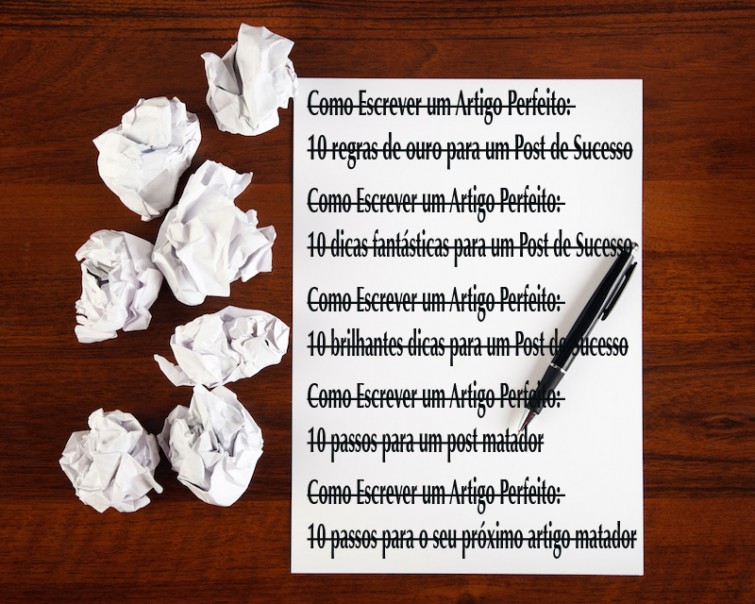 Como Escrever um Artigo Perfeito:
10 regras de ouro para um Post de Sucesso
Como Escrever um Artigo Perfeito:
10 dicas fantásticas para um Post de Sucesso
Como Escrever um Artigo Perfeito:
10 brilhantes dicas para um Post de Sucesso
Como Escrever um Artigo Perfeito:
10 passos para um post matador
Como Escrever um Artigo Perfeito:
10 passos para o seu próximo artigo matador